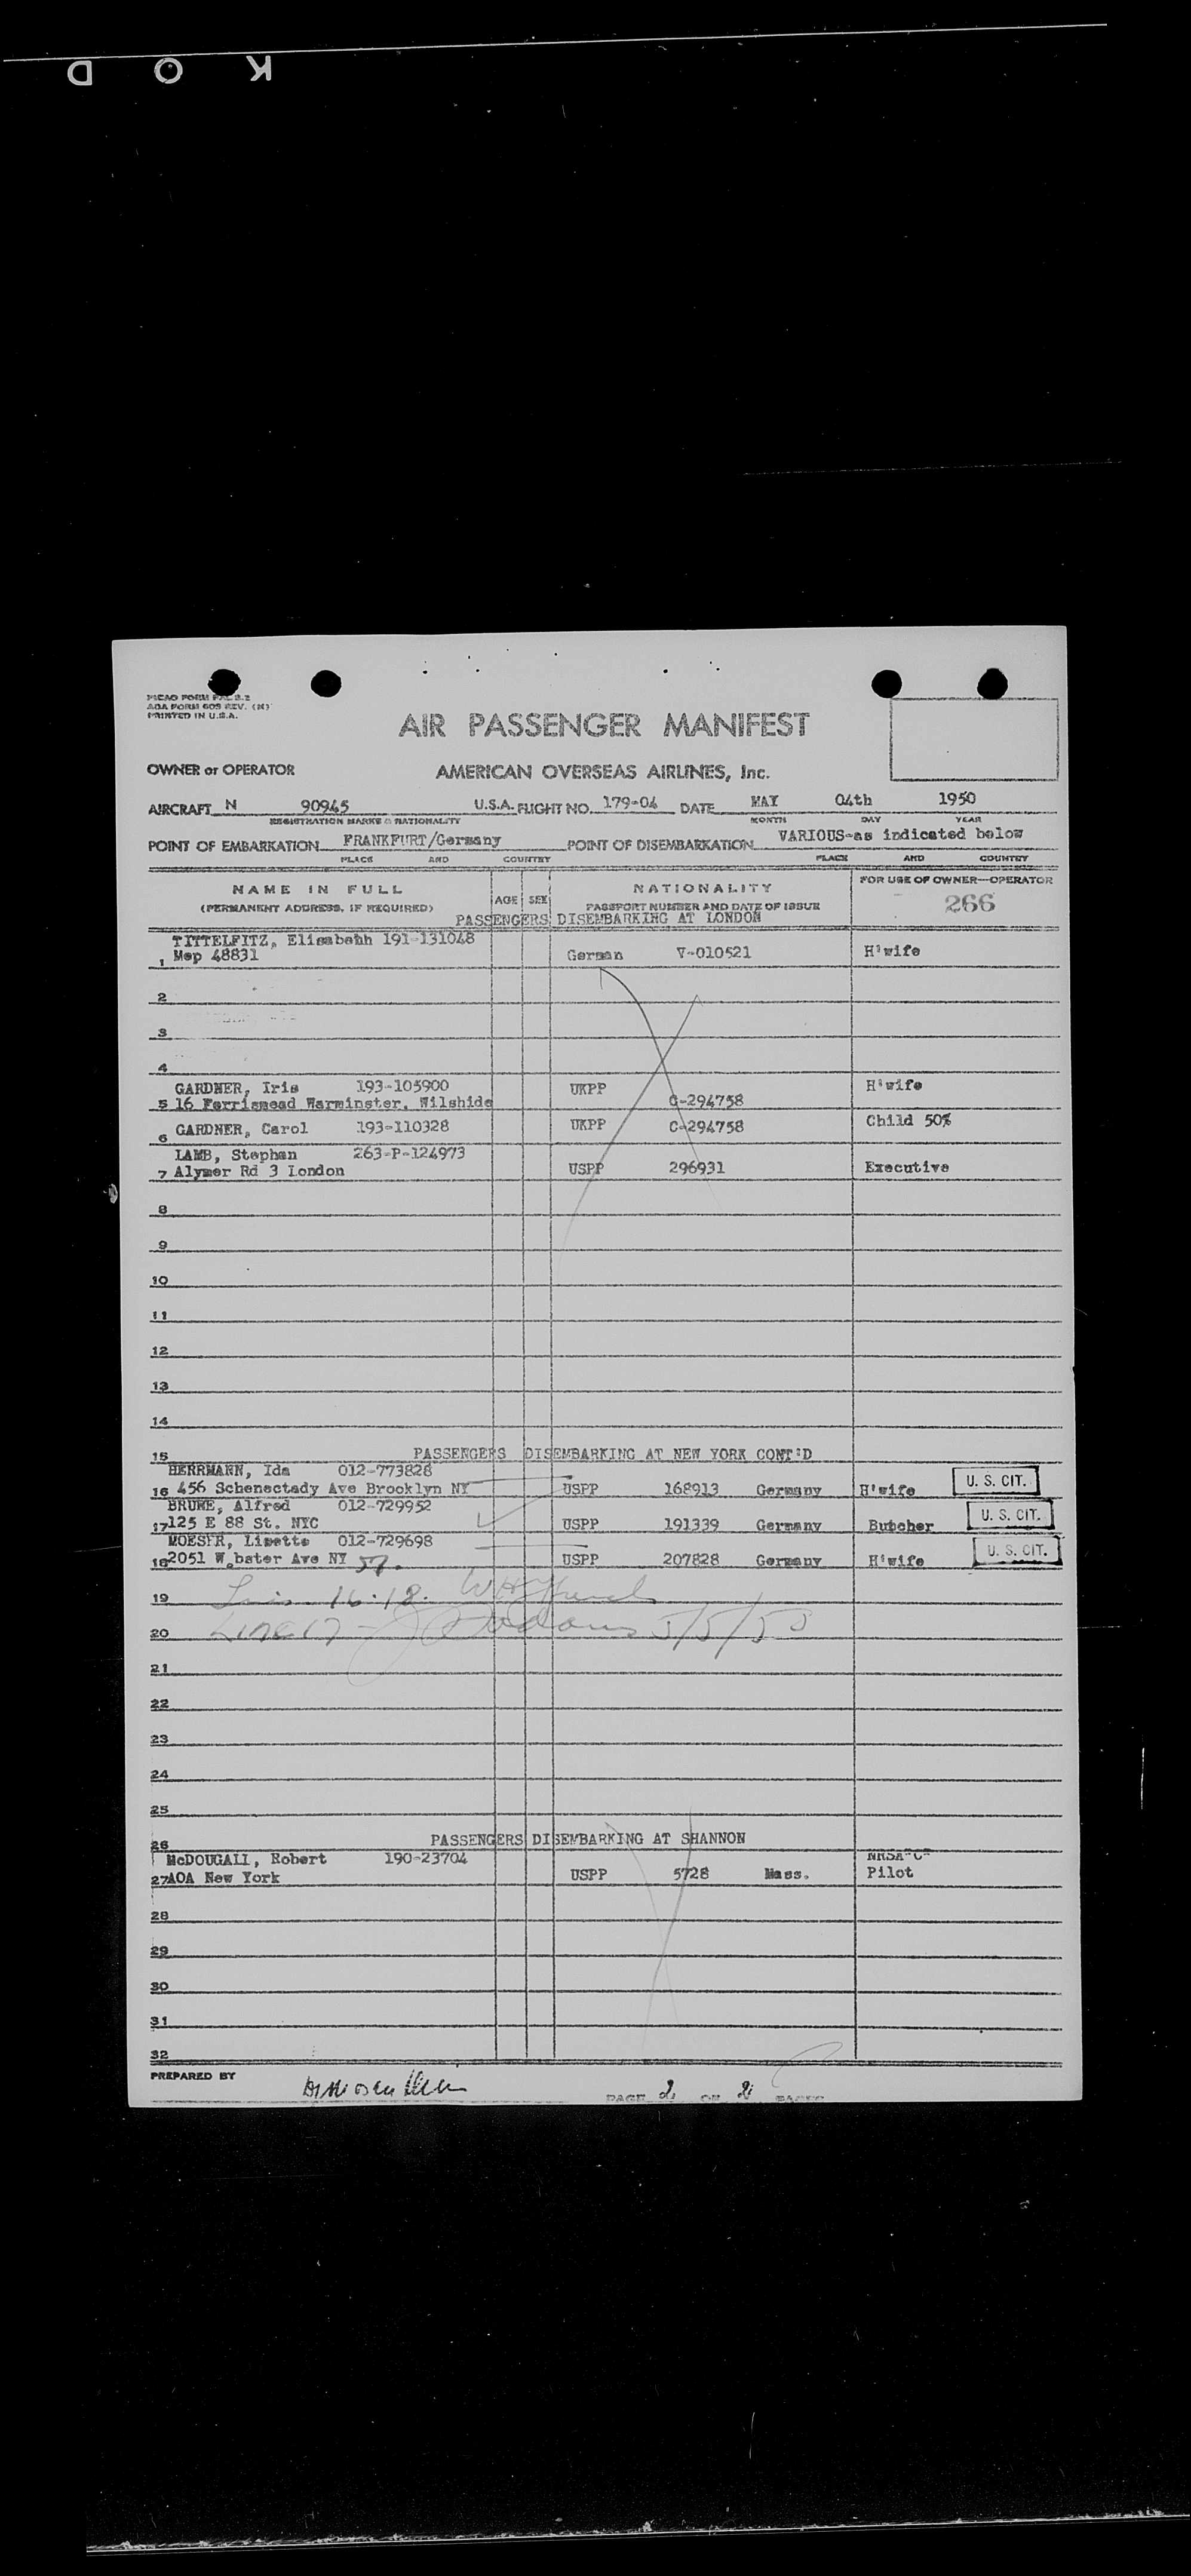 K O D
PICAO FORM PAL 2-2
AOA FORM 609 REV. (M)
PRINTED IN U.S.A.
AIR PASSENGER MANIFEST
OWNER or OPERATOR AMERICAN OVERSEAS AIRLINES, Inc.
AIRCRAFT N 90945 U.S.A. FLIGHT NO. 179-04 DATE MAY 04th 1950
REGISTRATION MARKS & NATIONALITY MONTH DAY YEAR
POINT OF EMBARKATION FRANKFURT/Germany POINT OF DISEMBARKATION VARIOUS-as indicated below
PLACE AND COUNTRY PLACE AND COUNTRY
NAME IN FULL AGE SEX NATIONALITY FOR USE OF OWNER—OPERATOR
(PERMANENT ADDRESS, IF REQUIRED) PASSPORT NUMBER AND DATE OF ISSUE 266
PASSENGERS DISEMBARKING AT LONDON
TITTELFITZ, Elisabehh 191-131048
1 Mep 48831 German V-010521 H'wife
2
3
4
GARDNER, Iris 193-105900 UKPP H'wife
5 16 Ferrismead Warminster, Wilshide C-294758
6 GARDNER, Carol 193-110328 UKPP C-294758 Child 50%
LAMB, Stephan 263-P-124973
7 Alymer Rd 3 London USPP 296931 Executive
8
9
10
11
12
13
14
15 PASSENGERS DISEMBARKING AT NEW YORK CONT'D
HERRMANN, Ida 012-773828
16 456 Schenectady Ave Brooklyn NY USPP 168913 Germany H'wife U. S. CIT.
BRUKE, Alfred 012-729952
17 125 E 88 St. NYC USPP 191339 Germany Butcher U. S. CIT.
MOESER, Lisette 012-729698
18 2051 W bster Ave NY 57. USPP 207828 Germany H'wife U. S. CIT.
19 16:18.
20 Line 17 5/5/50
21
22
23
24
25
26 PASSENGERS DISEMBARKING AT SHANNON
McDOUGALL, Robert 190-23704 NRSA"C"
27 AOA New York USPP 5728 Mass. Pilot
28
29
30
31
32
PREPARED BY
PAGE 2 OF 2 PAGES